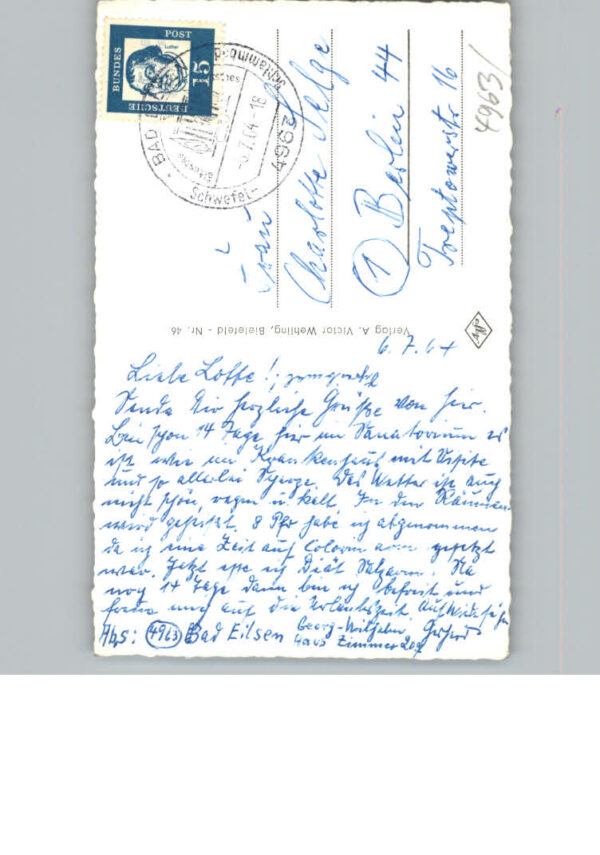 DEUTSCHE BUNDESPOST
15
Luther
BAD
Schlammbad
Schwefel-
-6.7.64-18
4963
4963/
Frau
Charlotte Selge
1 Berlin 44
Treptowerstr 16
Verlag A. Victor Wehling, Bielefeld - Nr. 46
6.7.64
Liebe Lotte!
Sende Dir herzliche Grüße von hier.
Bin schon 14 Tage hier im Sanatorium es
ist wie im Krankenhaus mit Visite
und so allerlei Scherze. Das Wetter ist auch
nicht schön, regen u. kalt. In den Räumen
wird geheizt. 8 Pfd habe ich abgenommen
da ich eine Zeit auf Calorien arm gesetzt
war. Jetzt esse ich Diät Salzarm. Na
noch 14 Tage dann bin ich befreit und
freue mich auf die Urlaubszeit. Auf Wiedersehn
Gerhard
Abs: 4963 Bad Eilsen Georg-Wilhelm
Haus Zimmer 209